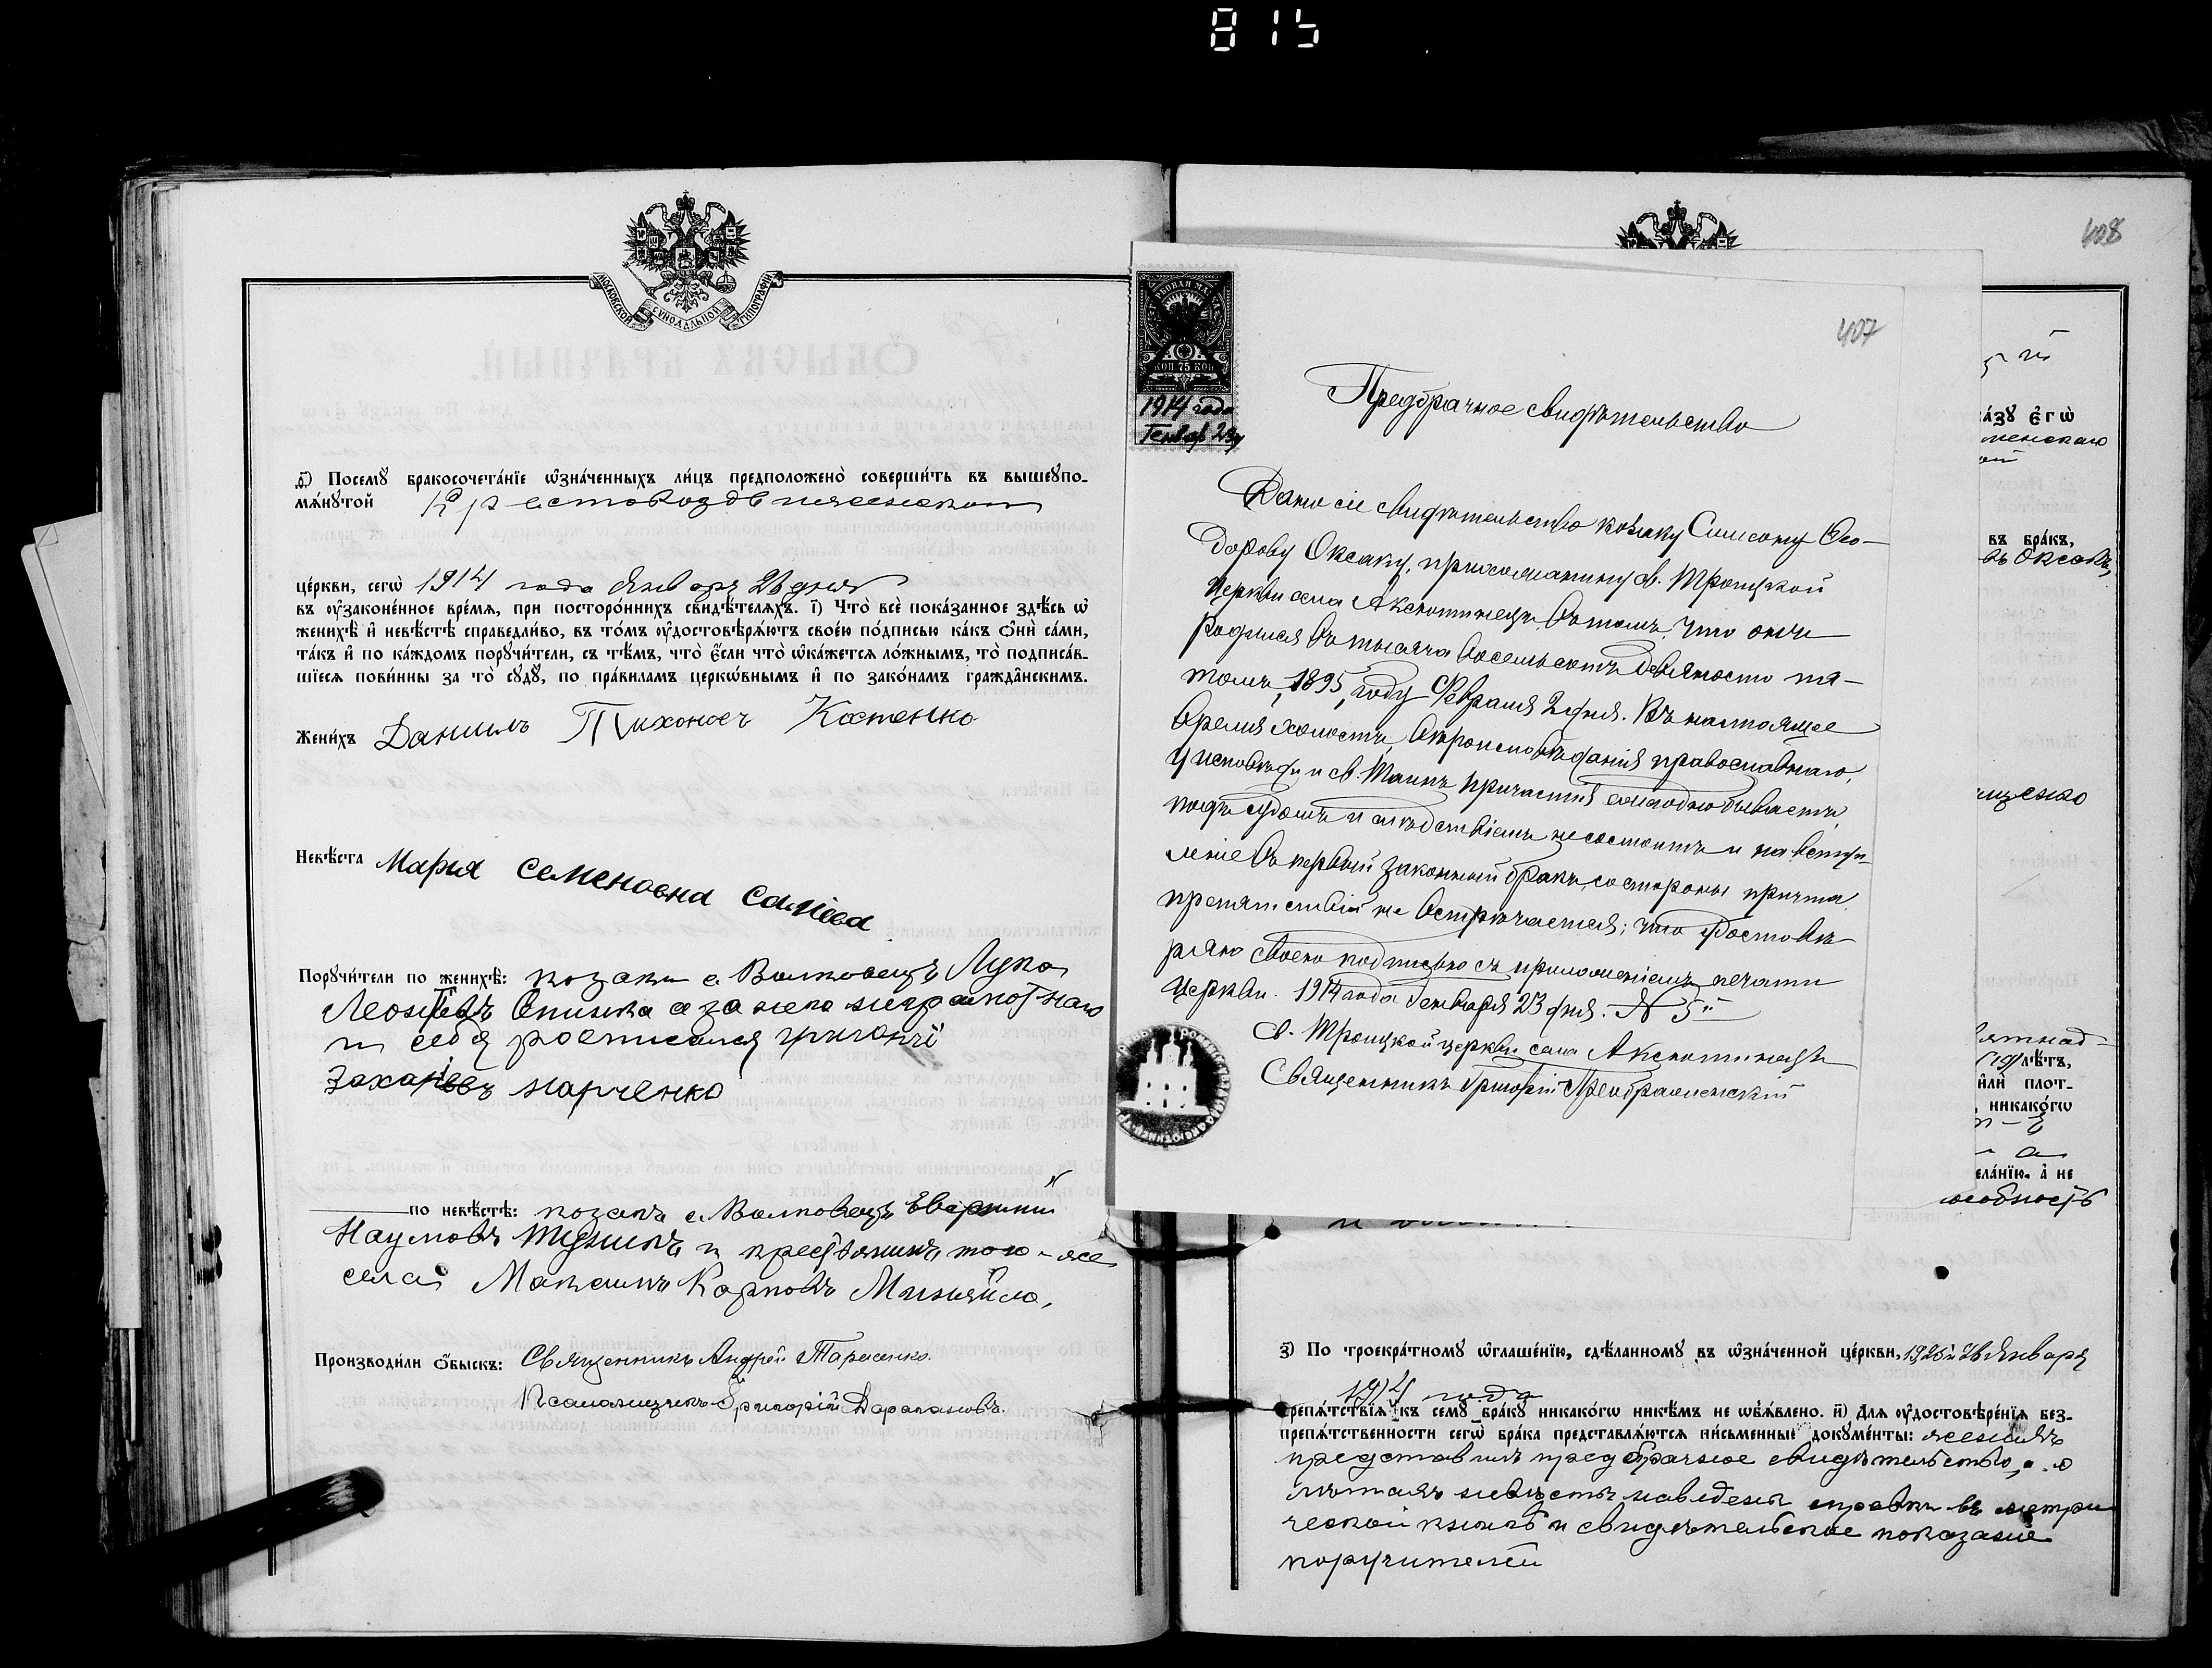 815
МОСКОВСКОЙ СѴНОДАЛЬНОЙ ТИПОГРАФІИ
ѳ҃) Посемꙋ̀ бракосочета́нїе ѡ҆зна́ченныхъ ли́цъ предположено̀ соверши́ть въ вышеꙋпо-
мѧ́нꙋтой Крестовоздвиженской
це́ркви, сегѡ̀ 1914 года Января 26 дня
въ ᲂу҆зако́ненное вре́мѧ, при посторо́ннихъ свидѣ́телѧхъ. і҃) Что̀ всѐ пока́занное здѣ́сь ѡ҆
женихѣ̀ и҆ невѣ́стѣ справедли́во, въ то́мъ ᲂу҆достовѣрѧ́ютъ свое́ю по́дписью ка́къ ѻ҆нѝ са́ми,
та́къ и҆ по ка́ждомъ порꙋчи́тели, съ тѣ́мъ, что̀ є҆́сли что̀ ѡ҆ка́жетсѧ ло́жнымъ, то̀ подписа́в-
шїесѧ пови́нны за то̀ сꙋдꙋ̀, по пра́виламъ церкѡ́внымъ и҆ по зако́намъ гражда̂нскимъ.
Жени́хъ Данилъ Тихоновъ Костенко
Невѣ́ста Марія Семеновна
Порꙋчи́тели по женихѣ̀: козаки с. Волковецъ Лука
Леонтьевъ а за него неграмотнаго
и себя росписался григорій
Захаріевъ марченко
по невѣ́стѣ: козакъ с. Волковецъ
Наумовъ и крестьянинъ того-же
села Максимъ Карповъ
Производи́ли ѻ҆́быскъ: Священникъ Андрей Тарасенко.
Псаломщикъ Григорій
408
407
КОП 75 КОП
1914 года
Генвар 23 д
Предбрачное свидѣтельство
Дано сіе свидѣтельство козаку Ѳео-
дорову Оксаку, прихожанину св. Троицкой
церкви села Аксютинецъ, въ томъ, что онъ
родился въ тысяча восемьсотъ девяносто пя-
томъ, 1895, году Февраля 2 дня. Въ настоящее
время холостъ, вѣроисповѣданія православнаго,
у исповѣди и св. Таинъ причастія ежегодно бываетъ,
подъ судомъ и слѣдствіемъ не состоитъ и на вступ-
леніе въ первый законный бракъ, со стороны причта
препятствій не встрѣчается; что удостовѣ-
ряю своею подписью съ приложеніемъ печати
церкви. 1914 года Генваря 23 дня. № 5
Св. Троицкой церкви села Аксютинецъ
Священникъ Григорій Преображенскій
а́зꙋ є҆гѡ̀
менскаго
въ бра́къ,
въ Оксакъ,
щенко
ятнад-
19 лѣ́тъ,
и҆лѝ плот-
никако́гѡ
ела́нїю, а҆ не
особность
з҃) По троекра́тномꙋ ѡ҆глаше́нїю, сдѣ́ланномꙋ въ ѡ҆зна́ченной це́ркви, 19, 25 и 26 Января
1914 года
препѧ́тствїѧ къ семꙋ̀ бра́кꙋ никако́гѡ никѣ́мъ не ѡ҆б̾ѧ́влено. и҃) Длѧ ᲂу҆достовѣре́нїѧ без-
препѧ́тственности сегѡ̀ бра́ка представлѧ́ютсѧ пи́сьменные докꙋме́нты: женихъ
представилъ предбрачное свидѣтельство, а о
лѣтахъ невѣсты наведена справка въ метри
ческой книгѣ и свидѣтельское показаніе
поручителей